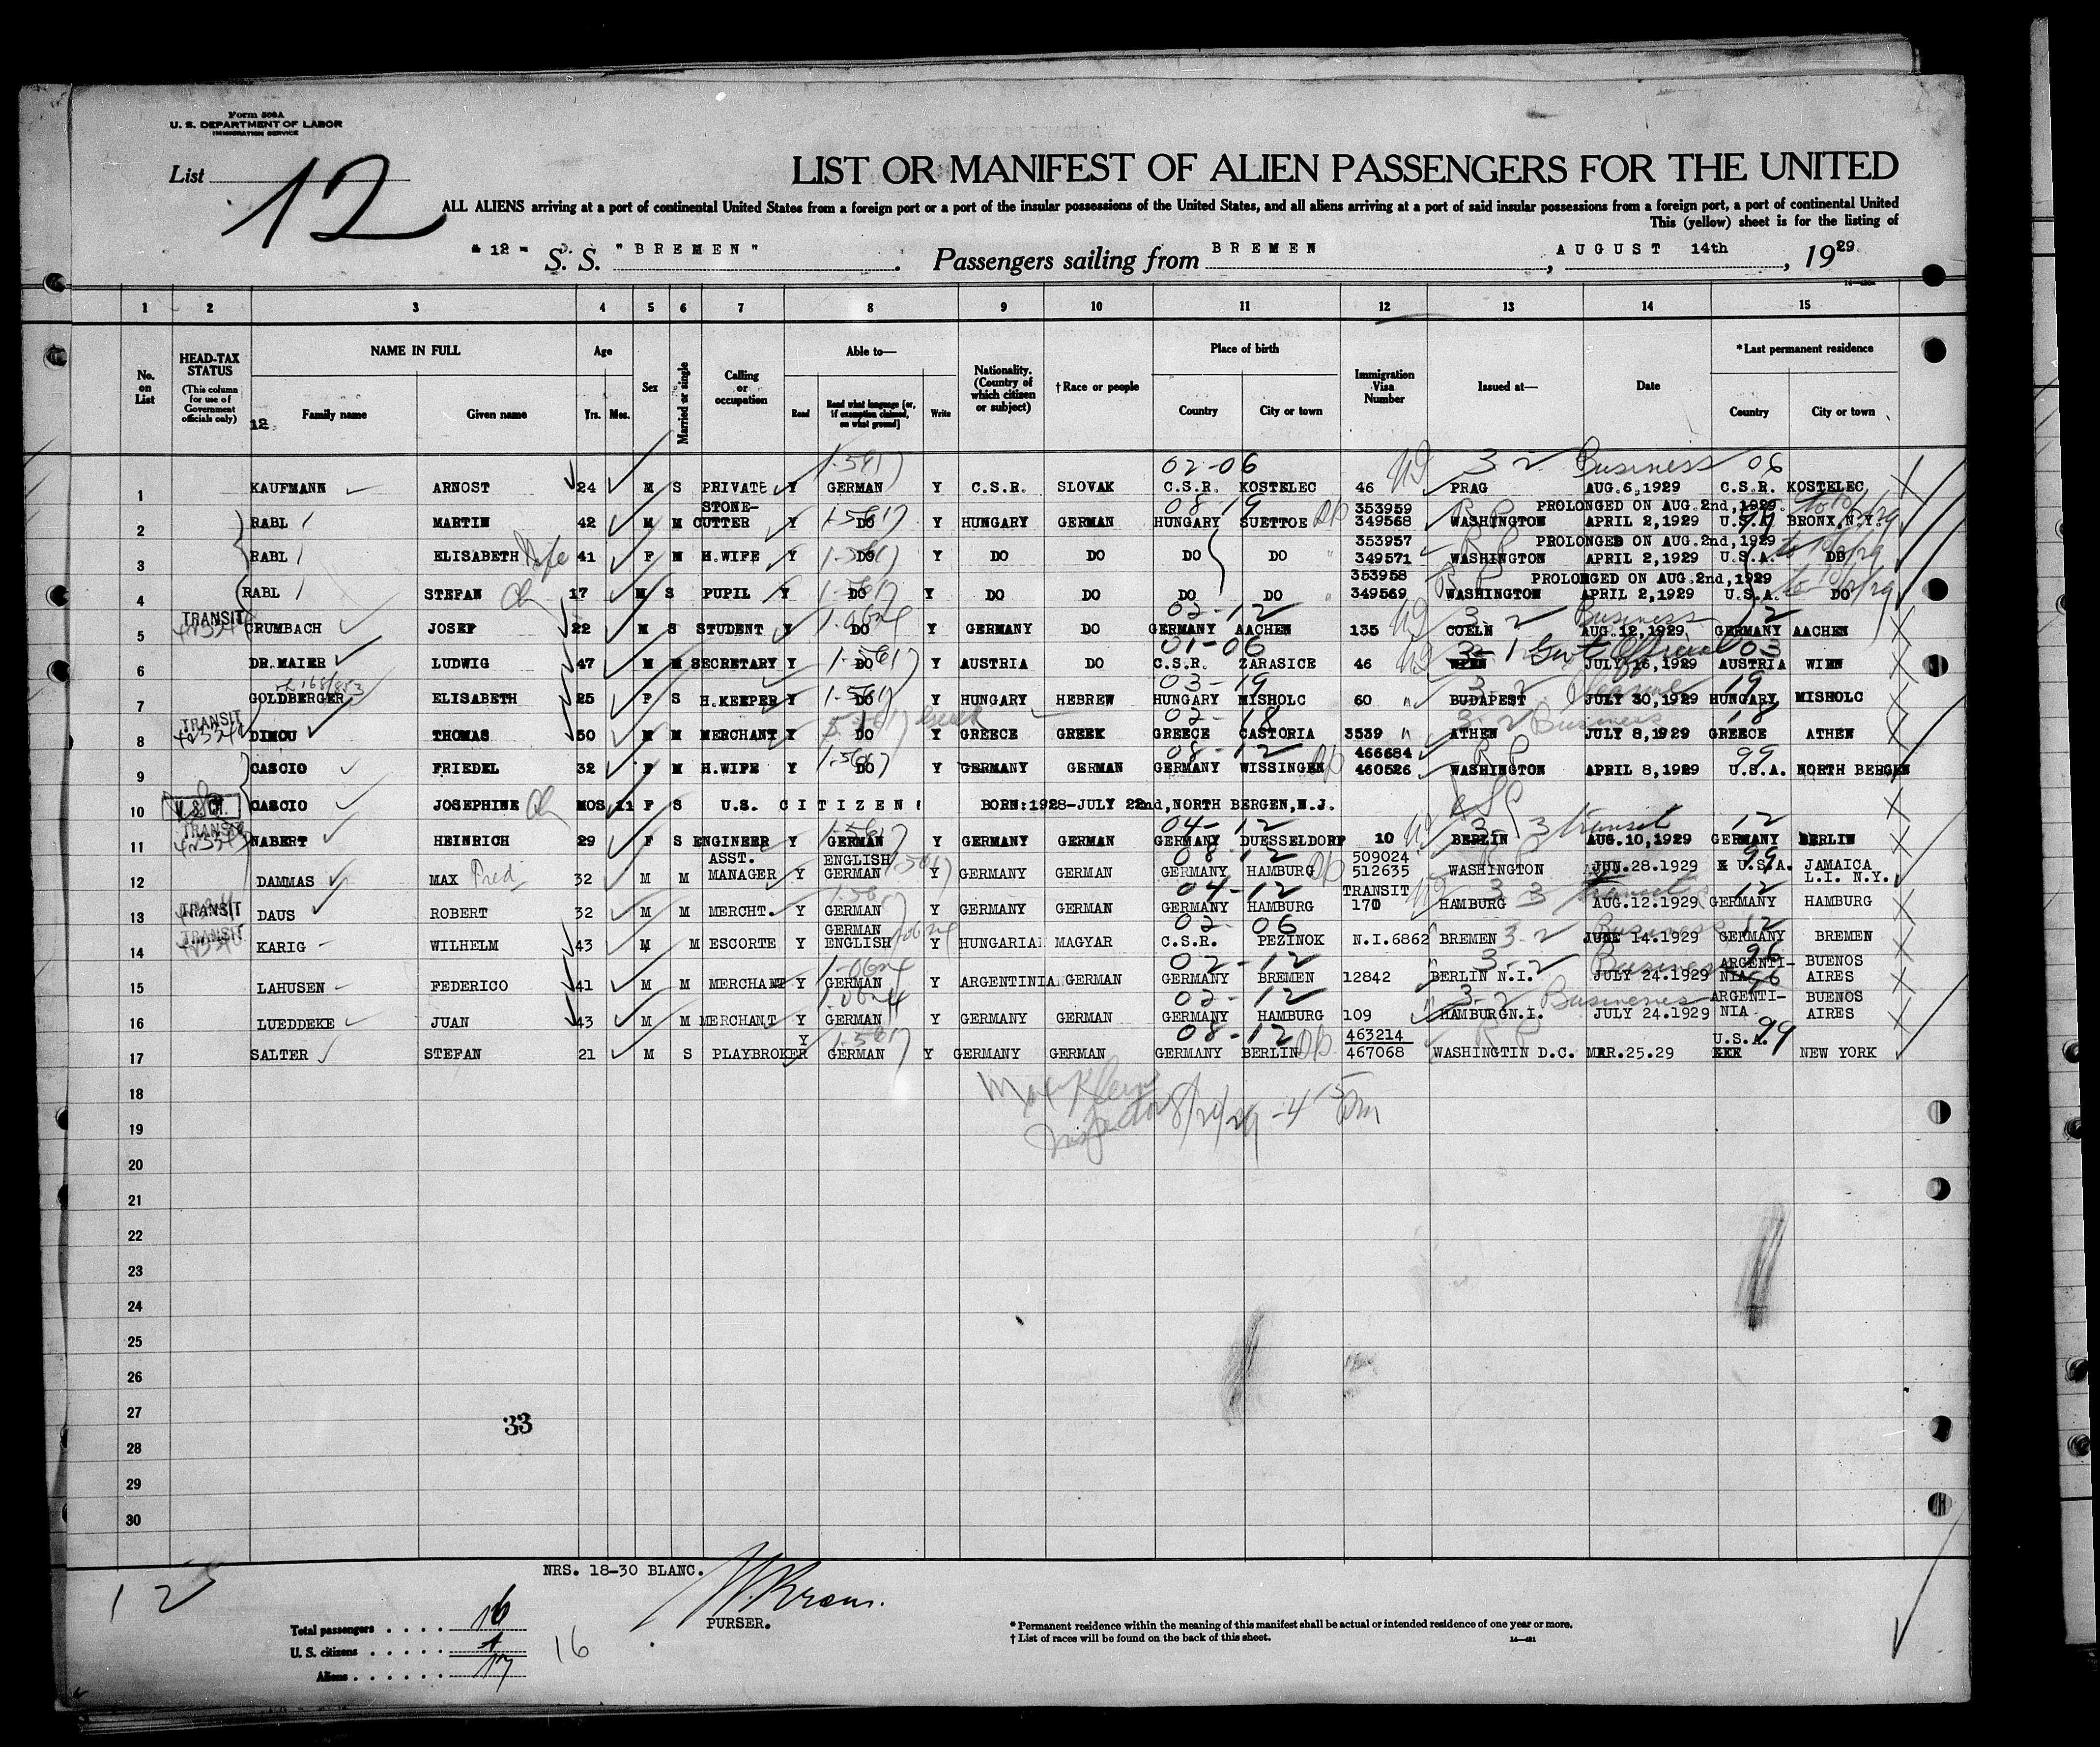 Form 500A
U. S. DEPARTMENT OF LABOR
IMMIGRATION SERVICE
List 12
LIST OR MANIFEST OF ALIEN PASSENGERS FOR THE UNITED
ALL ALIENS arriving at a port of continental United States from a foreign port or a port of the insular possessions of the United States, and all aliens arriving at a port of said insular possessions from a foreign port, a port of continental United
This (yellow) sheet is for the listing of
- 12 - S. S. "BREMEN" . Passengers sailing from BREMEN , AUGUST 14th , 1929.
1 2 3 4 5 6 7 8 9 10 11 12 13 14 15
No. on List
HEAD-TAX STATUS (This column for use of Government officials only)
NAME IN FULL
Family name
Given name
12
Age
Yrs. Mos.
Sex
Married or single
Calling or occupation
Able to—
Read
Read what language [or, if exemption claimed, on what ground]
Write
Nationality. (Country of which citizen or subject)
† Race or people
Place of birth
Country
City or town
Immigration Visa Number
Issued at—
Date
* Last permanent residence
Country
City or town
02-06 3-2 Business 06
1 KAUFMANN ARNOST 24 M S PRIVATE Y GERMAN Y C.S.R. SLOVAK C.S.R. KOSTELEC 46 PRAG AUG.6,1929 C.S.R. KOSTELEC
08-19 353959 PROLONGED ON AUG.2nd,1929.
2 RABL MARTIN 42 M M STONE-CUTTER Y DO Y HUNGARY GERMAN HUNGARY SUETTOE 349568 WASHINGTON APRIL 2,1929 U.S.A. BRONX,N.Y.
353957 PROLONGED ON AUG.2nd,1929
3 RABL ELISABETH Wife 41 F M H.WIFE Y DO Y DO DO DO DO 349571 WASHINGTON APRIL 2,1929 U.S.A. DO
353958 PROLONGED ON AUG.2nd,1929
4 RABL STEFAN Ch 17 M S PUPIL Y DO Y DO DO DO DO 349569 WASHINGTON APRIL 2,1929 U.S.A. DO
TRANSIT 02-12 3-2 Business 12
5 CRUMBACH JOSEF 22 M S STUDENT Y DO Y GERMANY DO GERMANY AACHEN 135 COELN AUG.12,1929 GERMANY AACHEN
01-06 3-1 Gov't Official 03
6 DR.MAIER LUDWIG 47 M M SECRETARY Y DO Y AUSTRIA DO C.S.R. ZARASICE 46 WIEN JULY 16,1929 AUSTRIA WIEN
03-19 3-2 19
7 GOLDBERGER ELISABETH 25 F S H.KEEPER Y DO Y HUNGARY HEBREW HUNGARY MISHOLC 60 BUDAPEST JULY 30,1929 HUNGARY MISHOLC
TRANSIT 02-18 3-2 Business 18
8 DIMOU THOMAS 50 M M MERCHANT Y DO Y GREECE GREEK GREECE CASTORIA 3539 ATHEN JULY 8,1929 GREECE ATHEN
08-12 466684 RP 99
9 CASCIO FRIEDEL 32 F M H.WIFE Y DO Y GERMANY GERMAN GERMANY WISSINGEN 460526 WASHINGTON APRIL 8,1929 U.S.A. NORTH BERGEN
10 CASCIO JOSEPHINE Ch MOS 11 F S U.S. CITIZEN! BORN:1928-JULY 22nd,NORTH BERGEN,N.J.
TRANSIT 04-12 3-3 transit 12
11 NABERT HEINRICH 29 F S ENGINEER Y GERMAN Y GERMANY GERMAN GERMANY DUESSELDORF 10 BERLIN AUG.10,1929 GERMANY BERLIN
08-12 509024 RP 99
12 DAMMAS MAX Fred 32 M M ASST. MANAGER Y ENGLISH GERMAN Y GERMANY GERMAN GERMANY HAMBURG 512635 WASHINGTON JUN.28.1929 U.S.A. JAMAICA L.I. N.Y.
TRANSIT 04-12 TRANSIT 3 3 transit 12
13 DAUS ROBERT 32 M M MERCHT. Y GERMAN Y GERMANY GERMAN GERMANY HAMBURG 170 HAMBURG AUG.12.1929 GERMANY HAMBURG
TRANSIT 02 06 3-2 Business 12
14 KARIG WILHELM 43 M M ESCORTE Y GERMAN ENGLISH Y HUNGARIAN MAGYAR C.S.R. PEZINOK N.I.6862 BREMEN JUNE 14.1929 GERMANY BREMEN
02-12 3-2 Business 96
15 LAHUSEN FEDERICO 41 M M MERCHANT Y GERMAN Y ARGENTINIA GERMAN GERMANY BREMEN 12842 BERLIN N.I. JULY 24.1929 ARGENTI-NIA BUENOS AIRES
02-12 3-2 Business 96
16 LUEDDEKE JUAN 43 M M MERCHANT Y GERMAN Y GERMANY GERMAN GERMANY HAMBURG 109 HAMBURG N.I. JULY 24.1929 ARGENTI-NIA BUENOS AIRES
08-12 463214 RP 99
17 SALTER STEFAN 21 M S PLAYBROKER Y GERMAN Y GERMANY GERMAN GERMANY BERLIN 467068 WASHINGTIN D.C. MAR.25.29 U.S.A. NEW YORK
18
Inspector
19
20
21
22
23
24
25
26
27
33
28
29
30
NRS. 18-30 BLANC.
12
PURSER.
Total passengers . . . . 16
U. S. citizens . . . . . 1
Aliens . . . . . . 17
16
* Permanent residence within the meaning of this manifest shall be actual or intended residence of one year or more.
† List of races will be found on the back of this sheet.
14—431